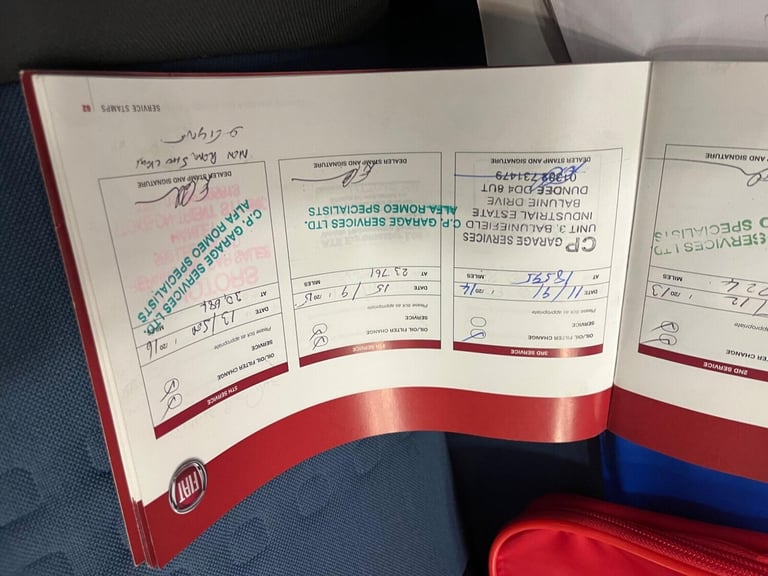 2ND SERVICE
SERVICES LTD
MILES
DEALER STAMP AND
3RD SERVICE
OIL/OIL FILTER CHANGE
SERVICE
Please tick as appropriate
DATE 11/9/2014
AT 18,595 MILES
CP GARAGE SERVICES
UNIT 3, BALUNIEFIELD
INDUSTRIAL ESTATE
BALUNIE DRIVE
DUNDEE DD4 8UT
731479
DEALER STAMP AND SIGNATURE
4TH SERVICE
OIL/OIL FILTER CHANGE
SERVICE
Please tick as appropriate
DATE 15/9/2015
AT 23,761 MILES
C.P. GARAGE SERVICES LTD.
ALFA ROMEO SPECIALISTS
DEALER STAMP AND SIGNATURE
5TH SERVICE
OIL/OIL FILTER CHANGE
SERVICE
Please tick as appropriate
DATE 2016
AT MILES
C.P. GARAGE SERVICES LTD.
ALFA ROMEO SPECIALISTS
DEALER STAMP AND SIGNATURE
SERVICE STAMPS 62
FIAT